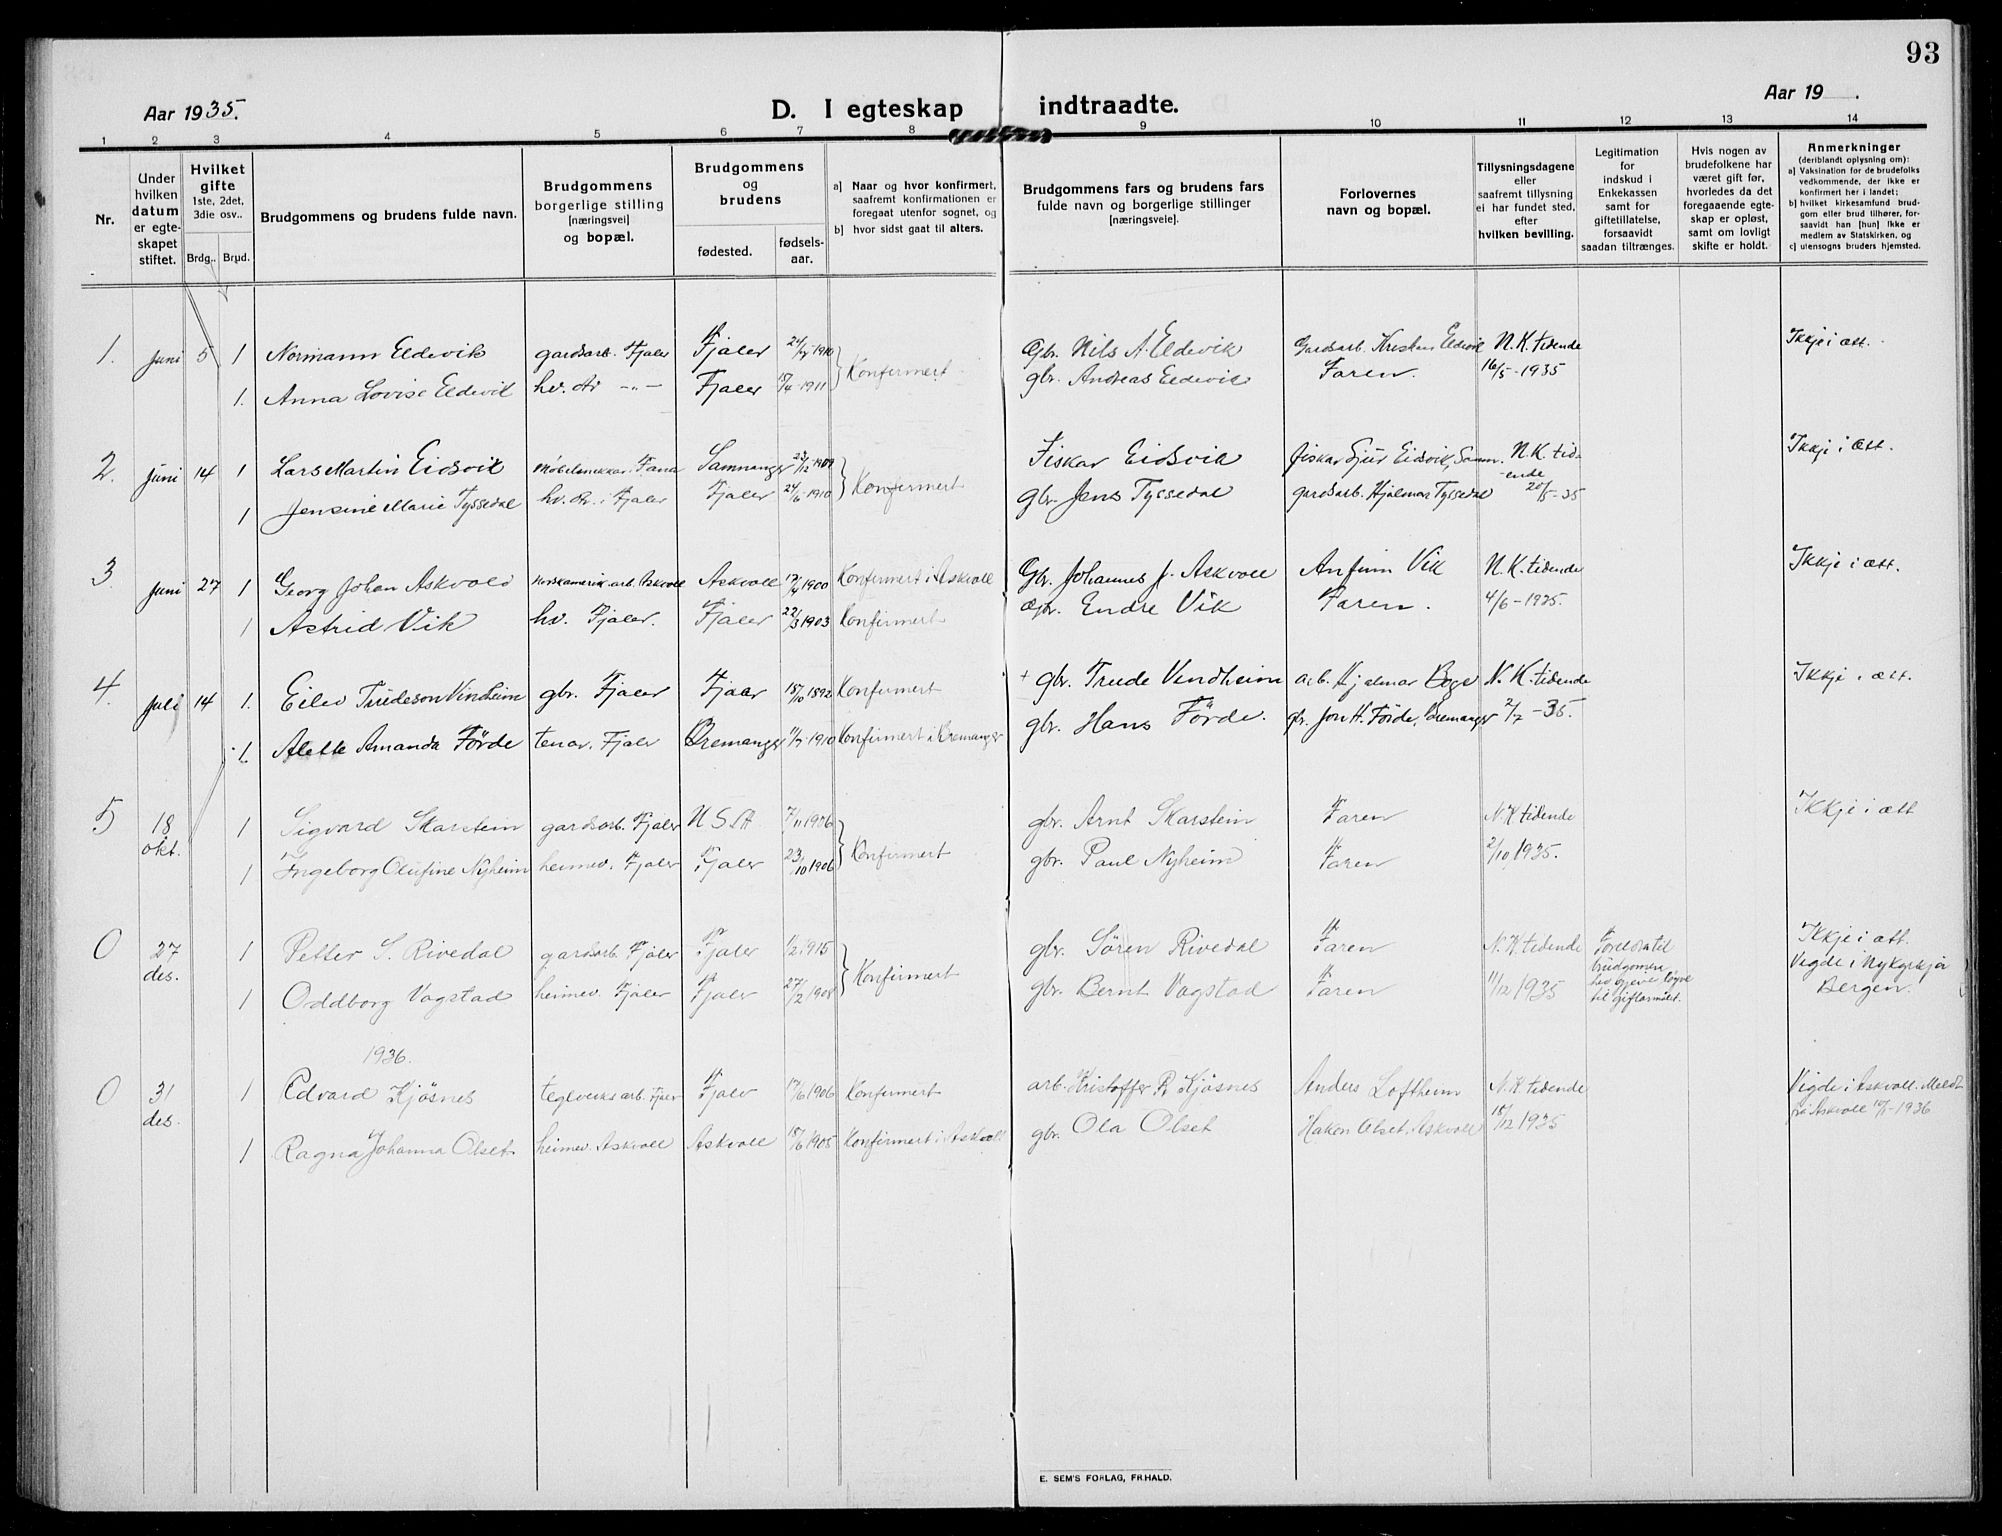 93
Aar 1935.
D. I egteskap indtraadte.
Aar 19 .
1 2 3 4 5 6 7 8 9 10 11 12 13 14
Nr.
Under hvilken datum er egteskapet stiftet.
Hvilket gifte 1ste, 2det, 3die osv..
Brdg.. Brud.
Brudgommens og brudens fulde navn.
Brudgommens borgerlige stilling [næringsvei] og bopæl.
Brudgommens og brudens
fødested. fødselsaar.
a] Naar og hvor konfirmert, saafremt konfirmationen er foregaat utenfor sognet, og
b] hvor sidst gaat til alters.
Brudgommens fars og brudens fars fulde navn og borgerlige stillinger [næringsveie].
Forlovernes navn og bopæl.
Tillysningsdagene eller saafremt tillysning ei har fundet sted, efter hvilken bevilling.
Legitimation for indskud i Enkekassen samt for giftetillatelse, forsaavidt saadan tiltrænges.
Hvis nogen av brudefolkene har været gift før, hvorledes da det foregaaende egteskap er opløst, samt om lovligt skifte er holdt.
Anmerkninger
(deriblandt oplysning om):
a] Vaksination for de brudefolks vedkommende, der ikke er konfirmert her i landet;
b] hvilket kirkesamfund brudgom eller brud tilhører, forsaavidt han [hun] ikke er medlem av Statskirken, og
c] utensogns bruders hjemsted.
1. Juni 5 1 Normann Eldevik gardsarb. Fjaler Fjaler 1910 Gbr. Nils A. Eldevik Gardsarb. Eldevik N.K. tidende Ikkje i ætt.
1. Anna Lovise Eldevik hv. Fjaler 1911 Konfirmert gbr. Andreas Eldevik Faren. 16/5-1935
2. Juni 14 1 Lars Martin Eidsvik Fana Samnanger 1909 Fiskar Eidsvik fiskar Sjur Eidsvik, Samn. N.K. tid- Ikkje i ætt.
1 Jensine Marie Tyssedal hv. i Fjaler Fjaler 1910 Konfirmert gbr. Jens Tyssedal gardsarb. Hjalmar Tyssedal -ende 20/5-35
3 Juni 27 1 Georg Johan Askvold Askvoll Askvoll 1900 Konfirmert i Askvoll Gbr. Johannes J. Askvoll Anfinn Vik N.K. tidende Ikkje i ætt.
1 Astrid Vik hv. Fjaler. Fjaler 22/3 1903 Konfirmert gbr. Endre Vik Faren. 4/6-1935.
4. Juli 14 1. Eilev Trudeson Vindheim gbr. Fjaler Fjaler 18/10 1892 Konfirmert + gbr. Trude Vindheim arb. Hjalmar N.K. tidende Ikkje i ætt.
1. Alette Amanda Förde Fjaler Bremanger 1910 Konfirmert i Bremanger gbr. Hans Förde. gbr. Jon H. Förde, Bremanger 2/7-35.
5 18 okt. 1 Sigvard Skarstein gardsarb. Fjaler U.S.A 7/11 1906 gbr. Arnt Skarstein Faren N.K tidende Ikkje i ætt
1 Ingeborg Olufine Nyheim heimev. Fjaler Fjaler 23/10 1906 Konfirmert gbr. Paul Nyheim Faren 2/10 1935.
0 27 des. 1 Petter S. Rivedal gardsarb. Fjaler Fjaler 1/2 1915 gbr. Sören Rivedal Faren N.K tidende Foreldra til Ikkje i ætt.
1 Oddborg Vagstad heimev. Fjaler Fjaler 27/2 1908 Konfirmert gbr. Bernt Vagstad Faren 11/12 1935 brudgomen hev gjeve løyve til giftarmålet. Vigde i Nykyrkja Bergen.
1936.
0 31 des. 1 Edvard Kjösnes teglverksarb. Fjaler Fjaler 17/6 1906 Konfirmert arb. Kristoffer R Kjösnes Anders Loftheim N.K. tidende Vigde i Askvoll. Meldt
1 Ragna Johanna Olset heimev. Askvoll Askvoll 18/6 1905 Konfirmert i Askvoll gbr. Ola Olset Håkon Olset, Askvoll 18/12 1935 frå Askvoll 1936
E. SEM'S FORLAG, FR.HALD.